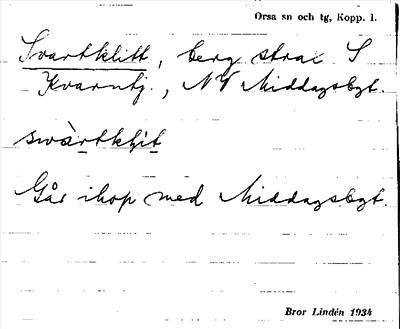 Orsa sn och tg, Kopp. l.
Svartklitt, berg strax S
Kvarntj., NV Middagsbgt.
swàrtkḷịt
Går ihop med Middagsbgt.
Bror Lindén 1934